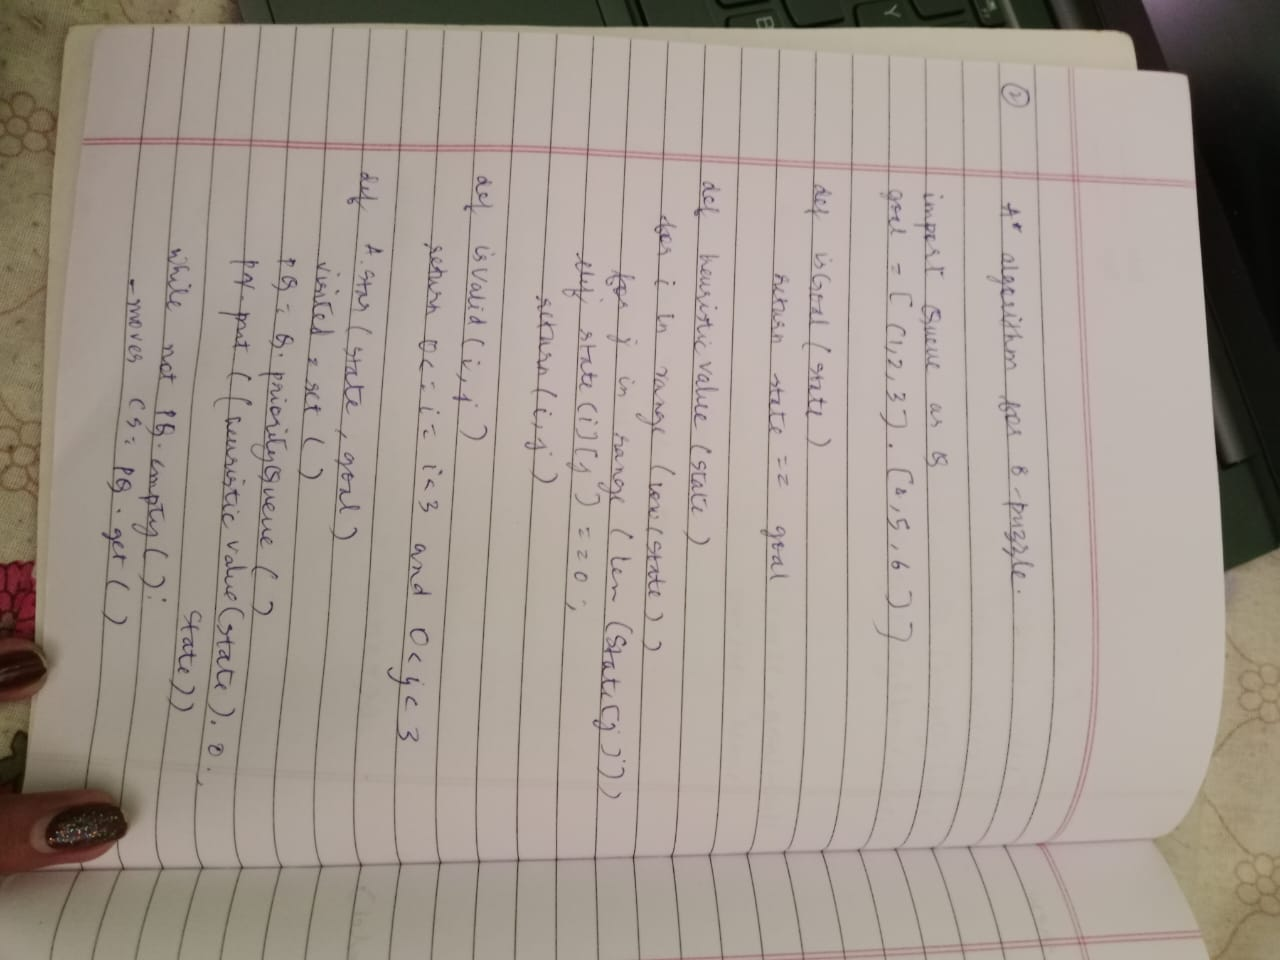 ②
A* algorithm for 8-puzzle.
import Queue as Q
goal = [ (1,2,3). [4,5,6)]
def isGoal (state)
return state == goal
def heuristic value (state)
for i in range (len(state))
for j in range (len (state[j]))
if state(i)[j) ==0;
return(i,j)
def isvalid (i,j)
return 0<=i= i<3 and 0<j<3
def A.star (state, goal)
visited = set ( )
PQ = Q. priorityQueue ( )
PQ.put ( ( heuristic value(state). 0.,
state))
while not PQ.empty( ):
-moves, cs= PQ. get ( )
B
Y